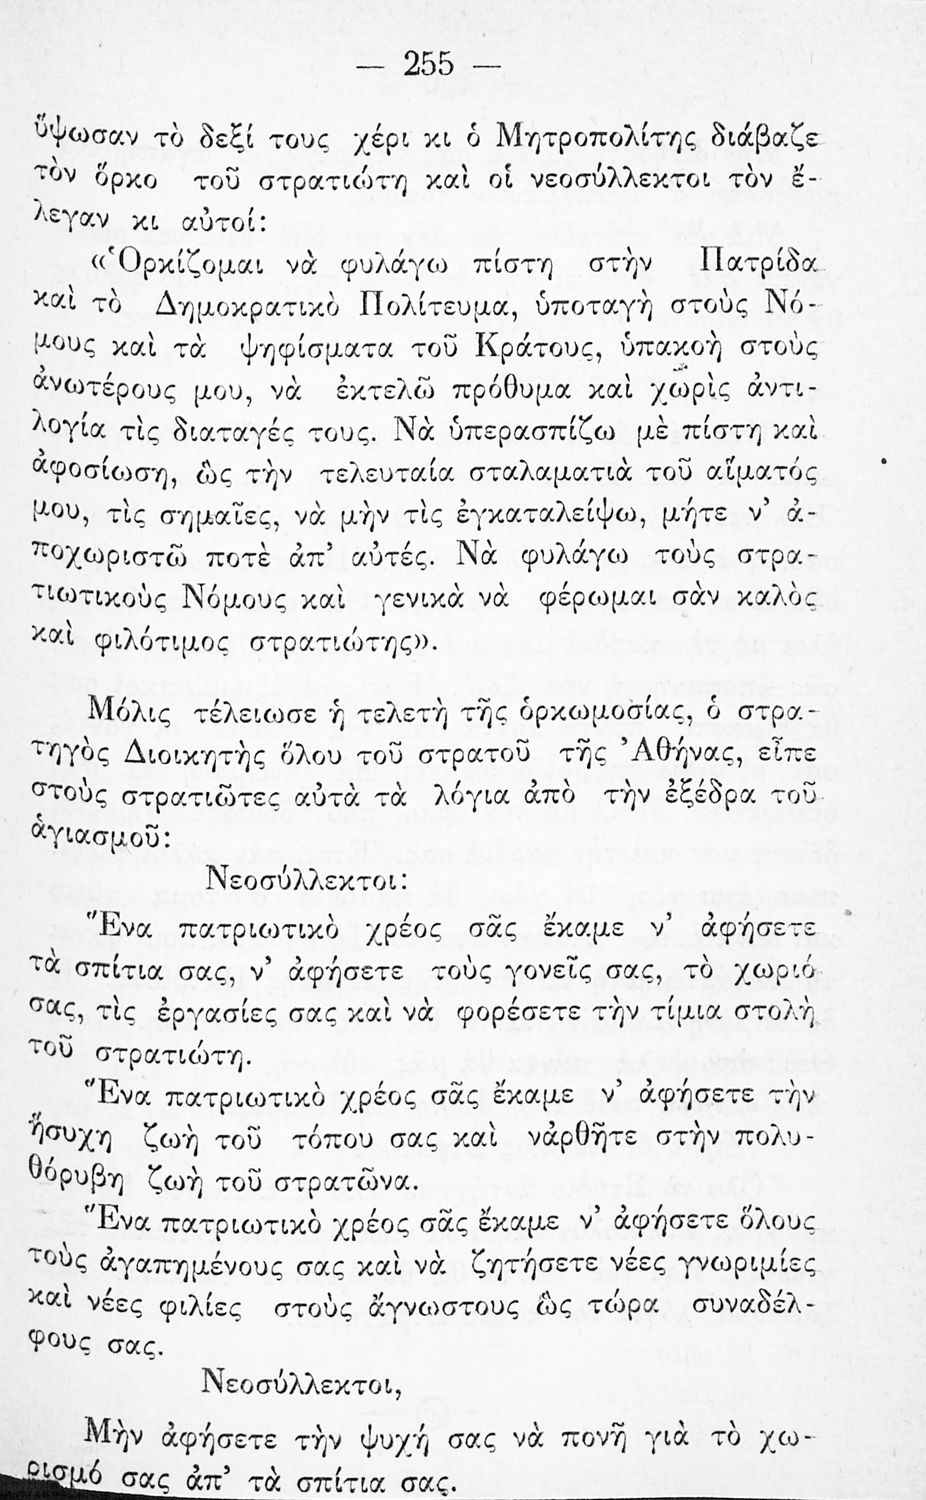 — 255 —
ὕψωσαν τὸ δεξί τους χέρι κι ὁ Μητροπολίτης διάβαζε
τὸν ὅρκο τοῦ στρατιώτη καὶ οἱ νεοσύλλεκτοι τὸν ἔ-
λεγαν κι αὐτοί:
«Ὁρκίζομαι νὰ φυλάγω πίστη στὴν Πατρίδα
καὶ τὸ Δημοκρατικὸ Πολίτευμα, ὑποταγὴ στοὺς Νό-
μους καὶ τὰ ψηφίσματα τοῦ Κράτους, ὑπακοὴ στοὺς
ἀνωτέρους μου, νὰ ἐκτελῶ πρόθυμα καὶ χωρὶς ἀντι-
λογία τὶς διαταγές τους. Νὰ ὑπερασπίζω μὲ πίστη καὶ
ἀφοσίωση, ὣς τὴν τελευταία σταλαματιὰ τοῦ αἵματός
μου, τὶς σημαῖες, νὰ μὴν τὶς ἐγκαταλείψω, μήτε ν’ ἀ-
ποχωριστῶ ποτὲ ἀπ’ αὐτές. Νὰ φυλάγω τοὺς στρα-
τιωτικοὺς Νόμους καὶ γενικὰ νὰ φέρωμαι σὰν καλὸς
καὶ φιλότιμος στρατιώτης».
Μόλις τέλειωσε ἡ τελετὴ τῆς ὁρκωμοσίας, ὁ στρα-
τηγὸς Διοικητὴς ὅλου τοῦ στρατοῦ τῆς Ἀθήνας, εἶπε
στοὺς στρατιῶτες αὐτὰ τὰ λόγια ἀπὸ τὴν ἐξέδρα τοῦ
ἁγιασμοῦ:
Νεοσύλλεκτοι:
Ἕνα πατριωτικὸ χρέος σᾶς ἔκαμε ν’ ἀφήσετε
τὰ σπίτια σας, ν’ ἀφήσετε τοὺς γονεῖς σας, τὸ χωριό
σας, τὶς ἐργασίες σας καὶ νὰ φορέσετε τὴν τίμια στολὴ
τοῦ στρατιώτη.
Ἕνα πατριωτικὸ χρέος σᾶς ἔκαμε ν’ ἀφήσετε τὴν
ἥσυχη ζωὴ τοῦ τόπου σας καὶ νἀρθῆτε στὴν πολυ-
θόρυβη ζωὴ τοῦ στρατῶνα.
Ἕνα πατριωτικὸ χρέος σᾶς ἔκαμε ν’ ἀφήσετε ὅλους
τοὺς ἀγαπημένους σας καὶ νὰ ζητήσετε νέες γνωριμίες
καὶ νέες φιλίες στοὺς ἄγνωστους ὣς τώρα συναδέλ-
φους σας.
Νεοσύλλεκτοι,
Μὴν ἀφήσετε τὴν ψυχή σας νὰ πονῆ γιὰ τὸ χω-
ρισμό σας ἀπ’ τὰ σπίτια σας.